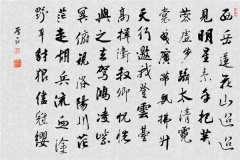 西岳蓮花山迢迢
見明星素手把
芙蓉虛步躡太清
霓裳曳廣帶飄拂升
天行邀我登雲臺
高揖衛叔卿恍恍
與之去駕鴻凌紫
冥俯視洛陽川茫
茫走胡兵流血塗
野草豺狼盡冠纓